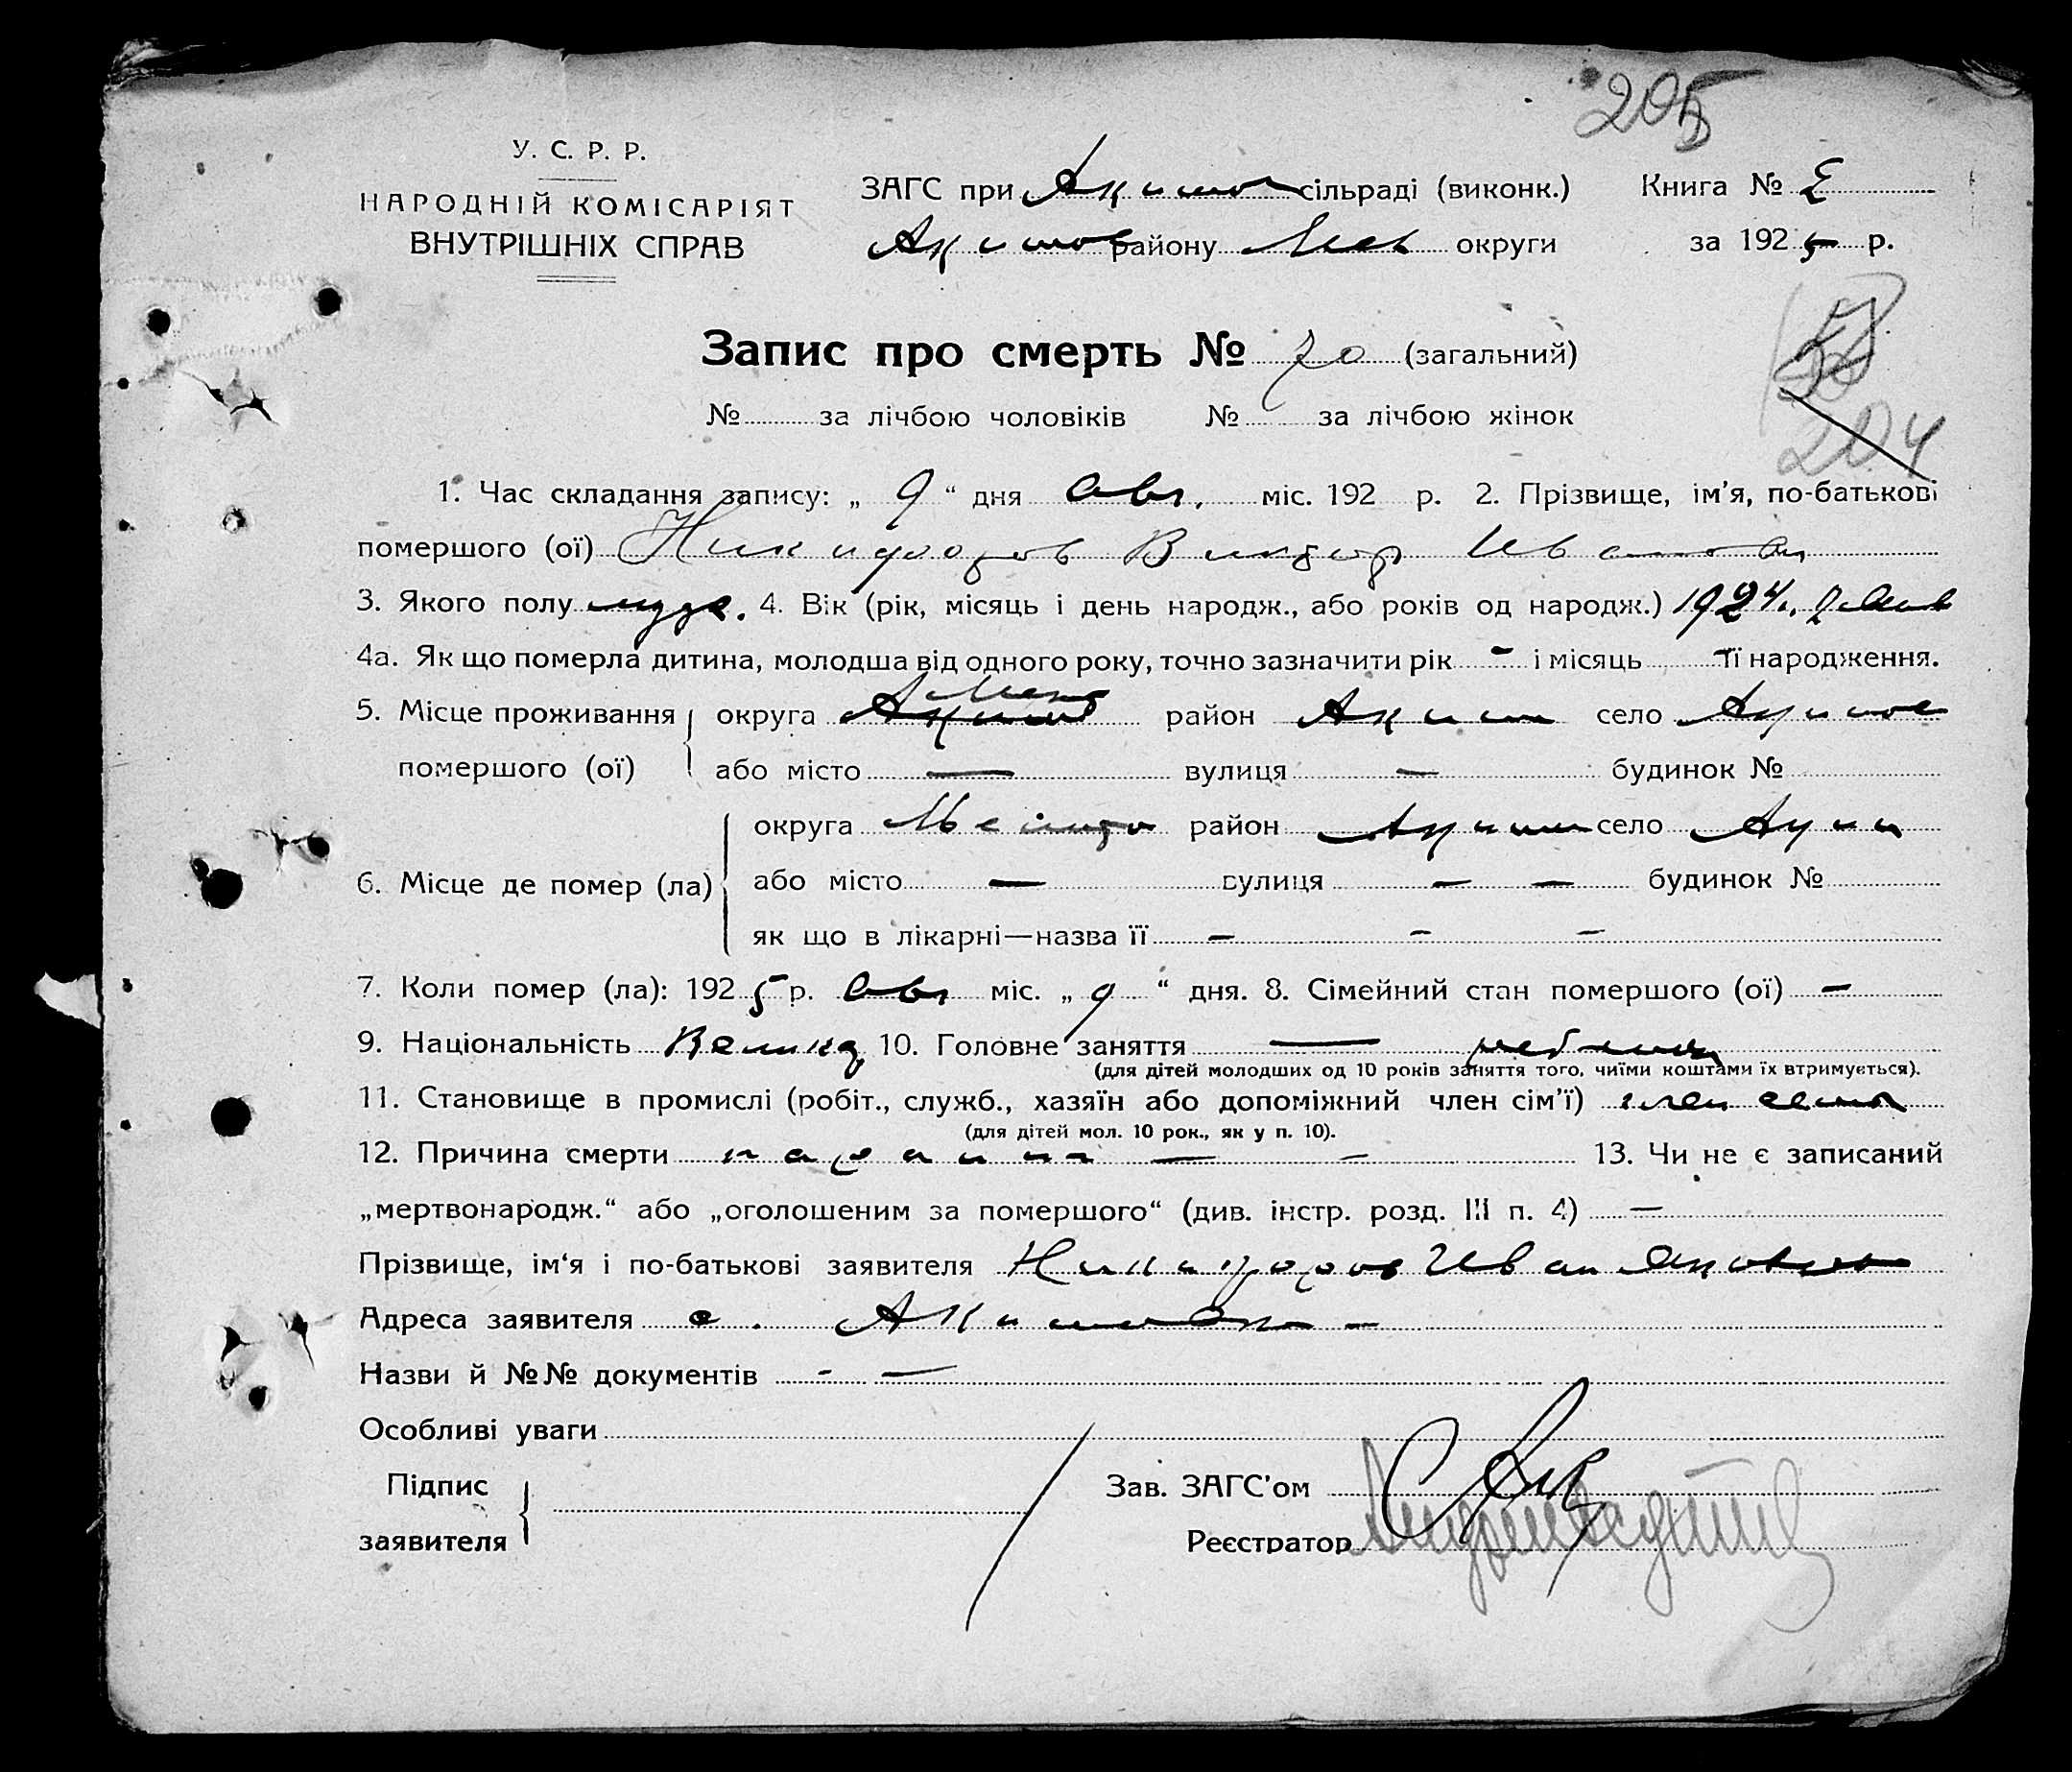 205
У. С. Р. Р.
НАРОДНІЙ КОМІСАРІЯТ
ВНУТРІШНІХ СПРАВ
ЗАГС при Акимов сільраді (виконк.) Книга №
Акимов району Мел округи за 1925 р.
Запис про смерть № 70 (загальний)
204
№ за лічбою чоловіків № за лічбою жінок
1. Час складання запису: „ 9 “ дня Авг. міс. 192 р. 2. Прізвище, ім’я, по-батькові
помершого (ої) Никифоров Виктор Иванов
3. Якого полу муж. 4. Вік (рік, місяць і день народж., або років од народж.) 1924.
4а. Як що померла дитина, молодша від одного року, точно зазначити рік - і місяць - її народження.
5. Місце проживання округа Мел район Аким село Акимов
помершого (ої) або місто — вулиця — будинок №
округа район Аким село Аким
6. Місце де помер (ла) або місто — вулиця — — будинок №
як що в лікарні—назва її — — —
7. Коли помер (ла): 1925 р. Авг міс. „ 9 “ дня. 8. Сімейний стан помершого (ої) —
9. Національність 10. Головне заняття — ребенок
(для дітей молодших од 10 років заняття того, чиїми коштами їх втримується).
11. Становище в промислі (робіт., служб., хазяїн або допоміжний член сім’ї) член семьи
(для дітей мол. 10 рок., як у п. 10).
12. Причина смерти — — 13. Чи не є записаний
„мертвонародж.“ або „оголошеним за помершого“ (див. інстр. розд. III п. 4) —
Прізвище, ім‘я і по-батькові заявителя Никифоров Иван Яковлев
Адреса заявителя с. Акимовка —
Назви й №№ документів - —
Особливі уваги
Підпис
заявителя
Зав. ЗАГС’ом
Реєстратор